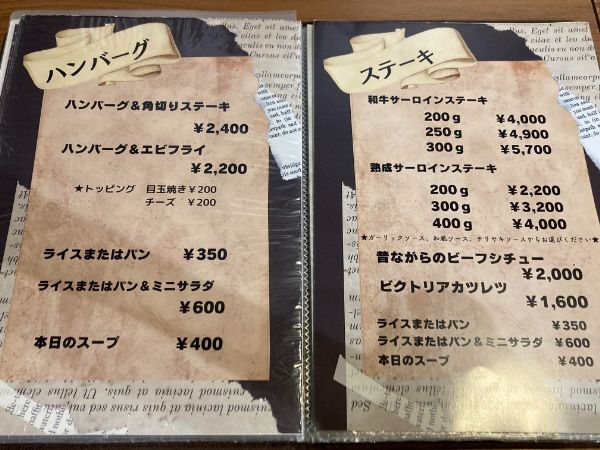 ハンバーグ
ハンバーグ&角切りステーキ
¥2,400
ハンバーグ&エビフライ
¥2,200
★トッピング 目玉焼き¥200
チーズ ¥200
ライスまたはパン ¥350
ライスまたはパン&ミニサラダ
¥600
本日のスープ ¥400
ステーキ
和牛サーロインステーキ
200g ¥4,000
250g ¥4,900
300g ¥5,700
熟成サーロインステーキ
200g ¥2,200
300g ¥3,200
400g ¥4,000
★ガーリックソース、和風ソース、テリヤキソースからお選びください★
昔ながらのビーフシチュー
¥2,000
ビクトリアカツレツ
¥1,600
ライスまたはパン ¥350
ライスまたはパン&ミニサラダ ¥600
本日のスープ ¥400